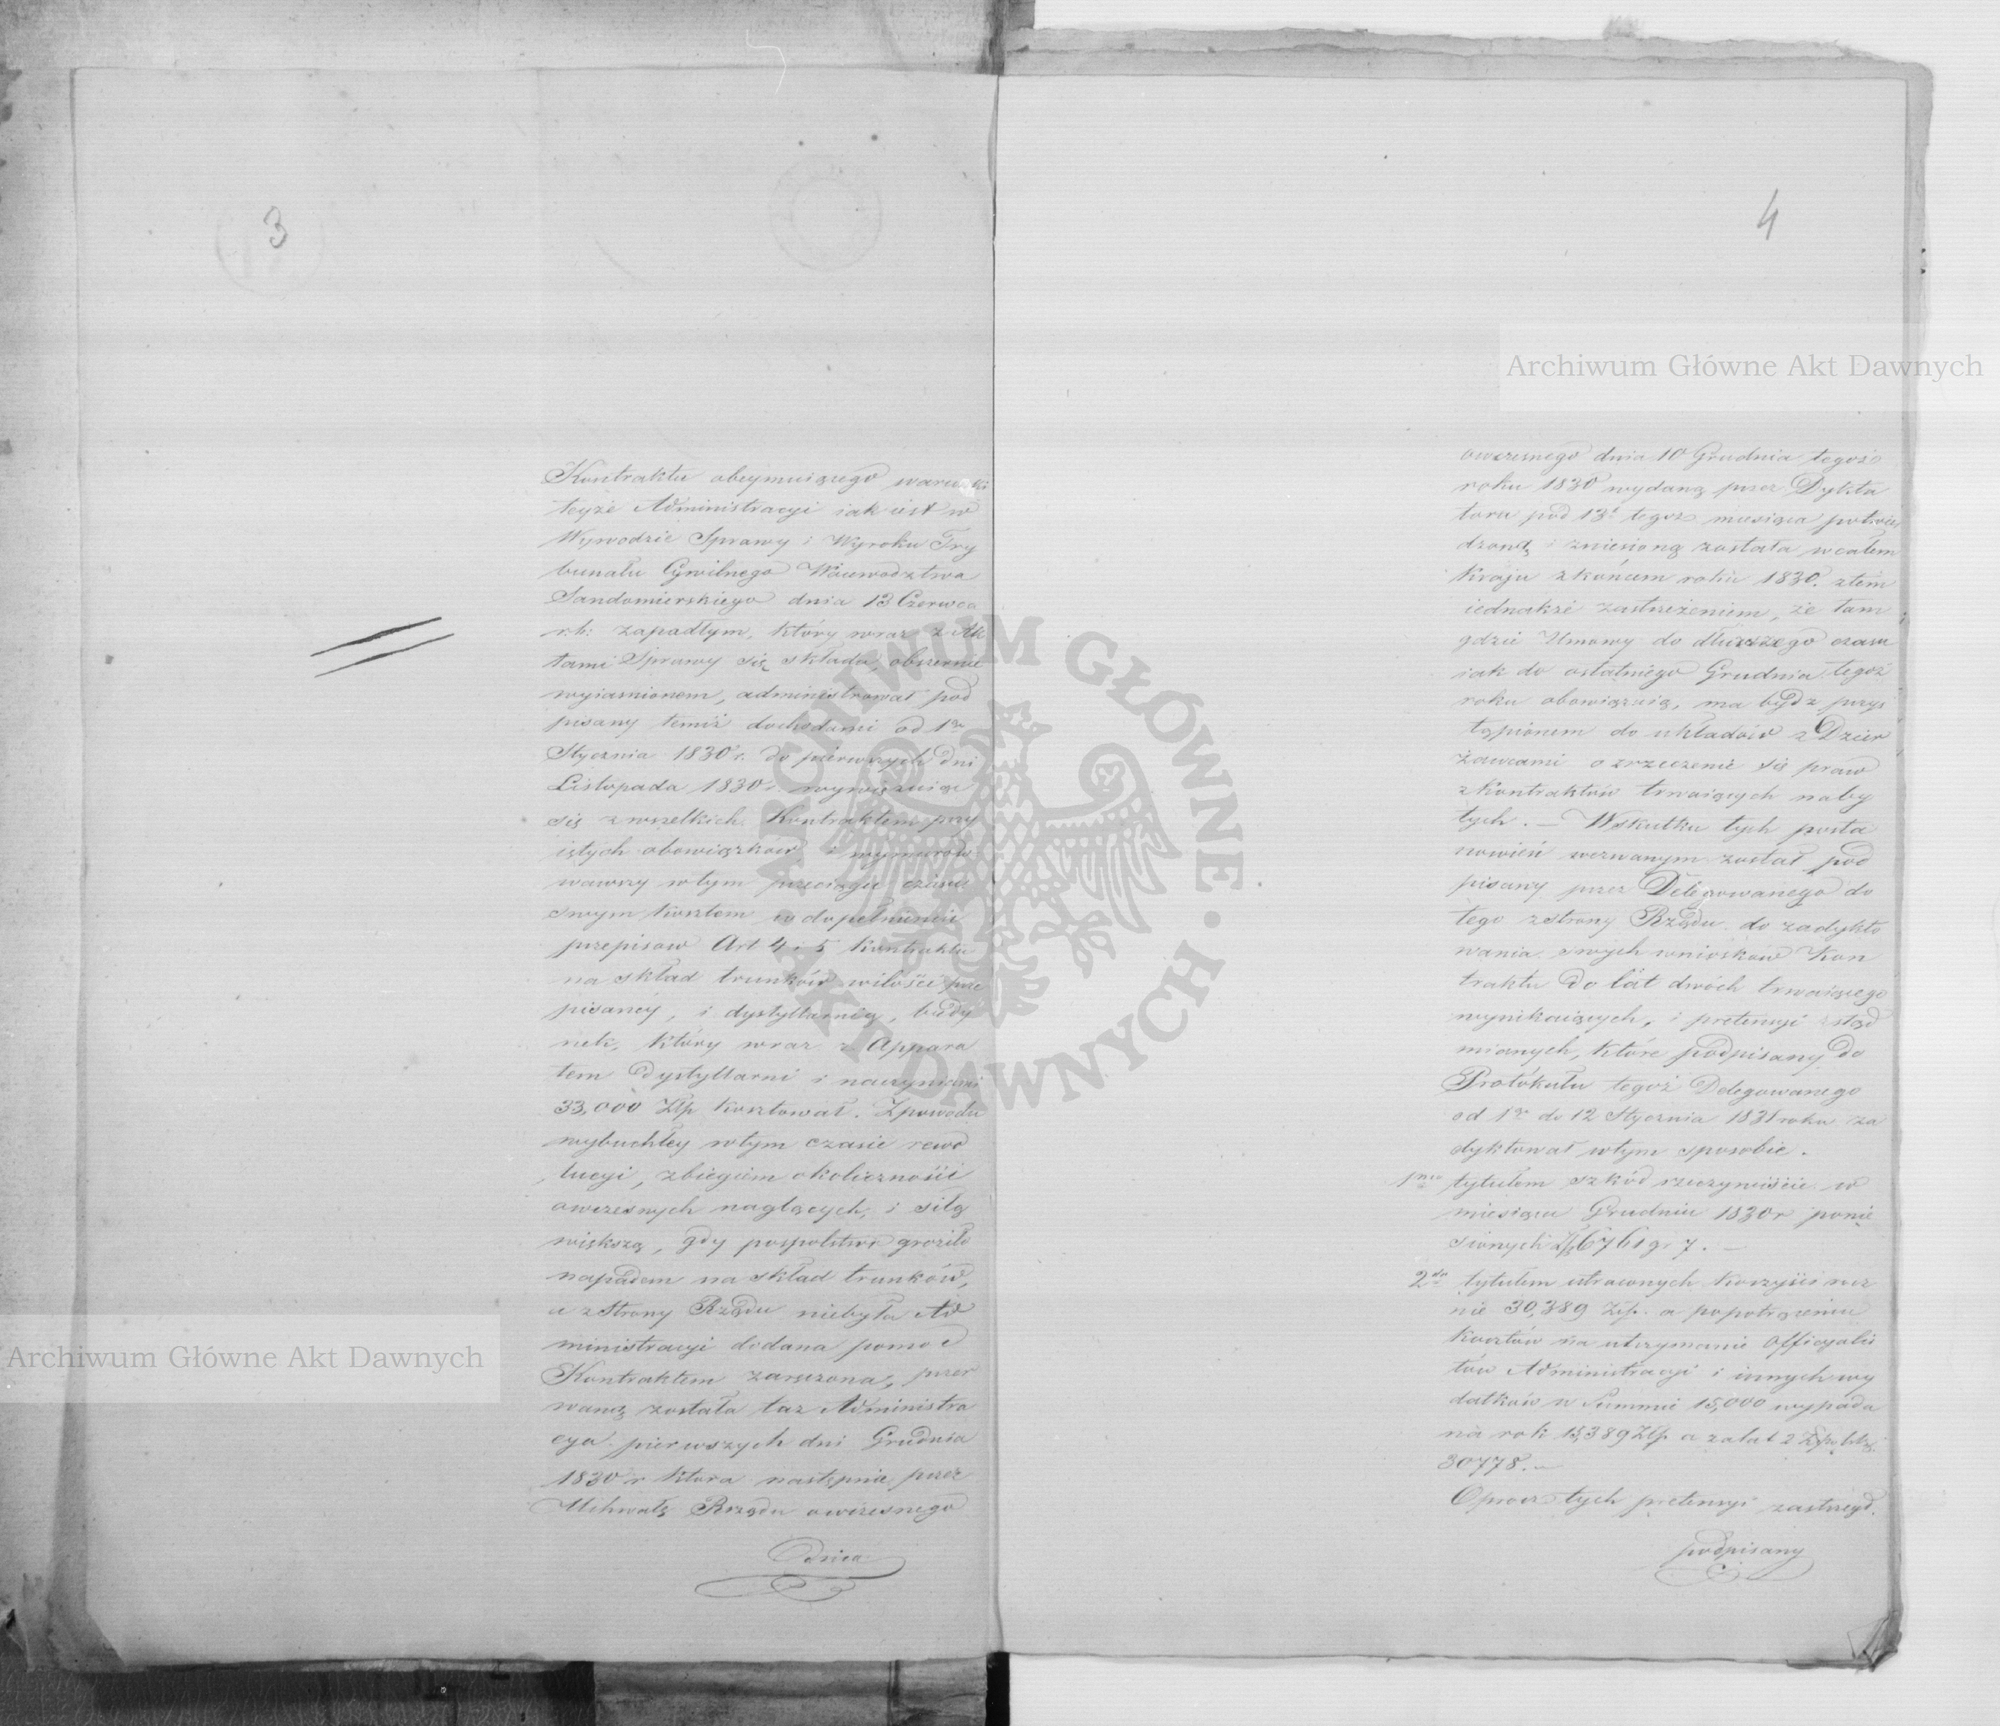 3
Kontraktu obeymuiącego warunki
teyże Administracyi iak iest w
Wywodzie Sprawy i Wyroku Try
bunału Cywilnego Woiewodztwa
Sandomierskiego dnia 13 Czerwca
r: b: zapadłym, który wraz z Ak
tami Sprawy się składa, obszernie
wyiaśnionem, administrował pod
pisany temiż dochodami od 1go
Stycznia 1830 r. do pierwszych dni
Listopada 1830 r. wywięzuiąc
się z wszelkich Kontraktem przy
iętych obowiązków i wymurow
wawszy w tym przeciągu czasu
swym kosztem w dopełnieniu
przepisow Art 4 i 5 Kontraktu
na skład trunków w ilości prze
pisaney, i dystyllarnią, budy
nek, który wraz z Appara
tem dystyllarni i naczyniami
33,000 Złp kosztował. Z powodu
wybuchłey w tym czasie rewo
lucyi, zbiegiem okoliczności
owczesnych naglących, i siłą
większą, gdy pospolstwo groziło
napadem na skład trunków,
a z strony Rządu niebyła Ad
ministracyi dodana pomoc
Kontraktem zaręczona, przer
waną została taż Administra
cya pierwszych dni Grudnia
1830 r która następnie przez
Uchwałę Rządu owczesnego
dnia
4
owczesnego dnia 10 Grudnia tegoż
roku 1830 wydaną przez Dykta
tora pod 13t tegoż miesiąca potwier
dzoną i zniesioną została w całem
Kraju z końcem roku 1830. z tem
iednakże zastrzeżeniem, że tam
gdzie Umowy do dłuższego czasu
iak do ostatniego Grudnia tegoż
roku obowięzuią, ma bydź przys
tąpionem do układów z Dzier
żawcami o zrzeczenie się praw
z kontraktów trwaiących naby
tych. — Wskutku tych posta
nowień wezwanym został pod
pisany przez Delegowanego do
tego z strony Rządu do zadykto
wania swych wniosków z Kon
traktu do lát dwóch trwaiącego
wynikaiących, i pretensyi ztąd
mianych, które podpisany do
Protokułu tegoż Delegowanego
od 1go do 12 Stycznia 1831 roku za
dyktował w tym sposobie.
1mo tytułem szkód rzeczywiście w
miesiącu Grudniu 1830 r ponie
sionych Złp 6761 gr 7. —
2do tytułem utraconych korzyści rocz
nie 30,389 Złp. a po potrąceniu
kosztów na utrzymanie Officyalis
tów Administracyi i innych wy
datków w Summie 15,000 wypada
na rok 15,389 Złp. a za lat 2
30778. —
Oprocz tych pretensyi zastrzegł
podpisany
Archiwum Główne Akt Dawnych
Archiwum Główne Akt Dawnych
ARCHIWUM GŁÓWNE AKT DAWNYCH